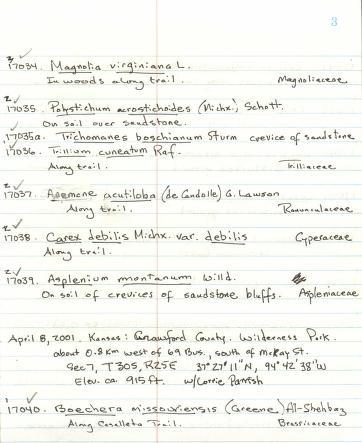 3
3 ✓
17034. Magnolia virginiana L.
In woods along trail. Magnoliaceae
2 ✓
17035. Polystichum acrostichoides (Michx.) Schott.
On soil over sandstone.
17035a. Trichomanes boschianum Sturm crevice of sandstone
17036. Trillium cuneatum Raf.
Along trail. Trilliaceae
2 ✓
17037. Anemone acutiloba (de Candolle) G. Lawson
Along trail. Ranunculaceae
2 ✓
17038. Carex debilis Michx. var. debilis Cyperaceae
Along trail.
2 ✓
17039. Asplenium montanum Willd.
On soil of crevices of sandstone bluffs. Aspleniaceae
April 8, 2001. Kansas: Crawford County. Wilderness Park.
about 0.8 km west of 69 Bus., south of McKay St.
Sec 7, T30S, R25E 37° 27' 11" N, 94° 42' 38" W
Elev. ca. 915 ft. w/ Lorrie Parrish
1 ✓
17040. Boechera missouriensis (Greene) Al-Shehbaz
Along Trail. Brassicaceae